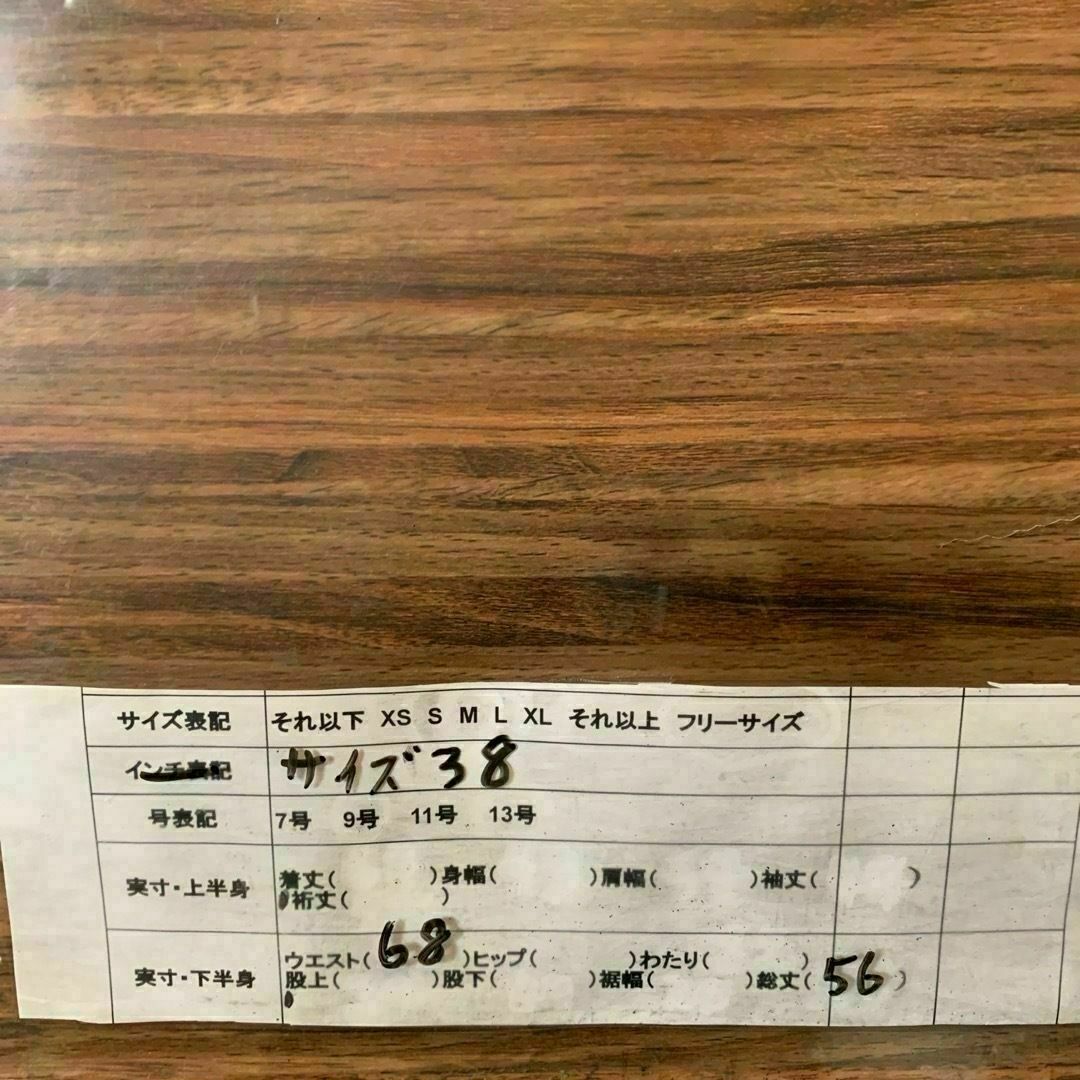 サイズ表記 それ以下 XS S M L XL それ以上 フリーサイズ
インチ表記 サイズ38
号表記 7号 9号 11号 13号
実寸・上半身 着丈( )身幅( )肩幅( )袖丈( )
裄丈( )
実寸・下半身 ウエスト(68)ヒップ( )わたり( )
股上( )股下( )裾幅( )総丈(56)